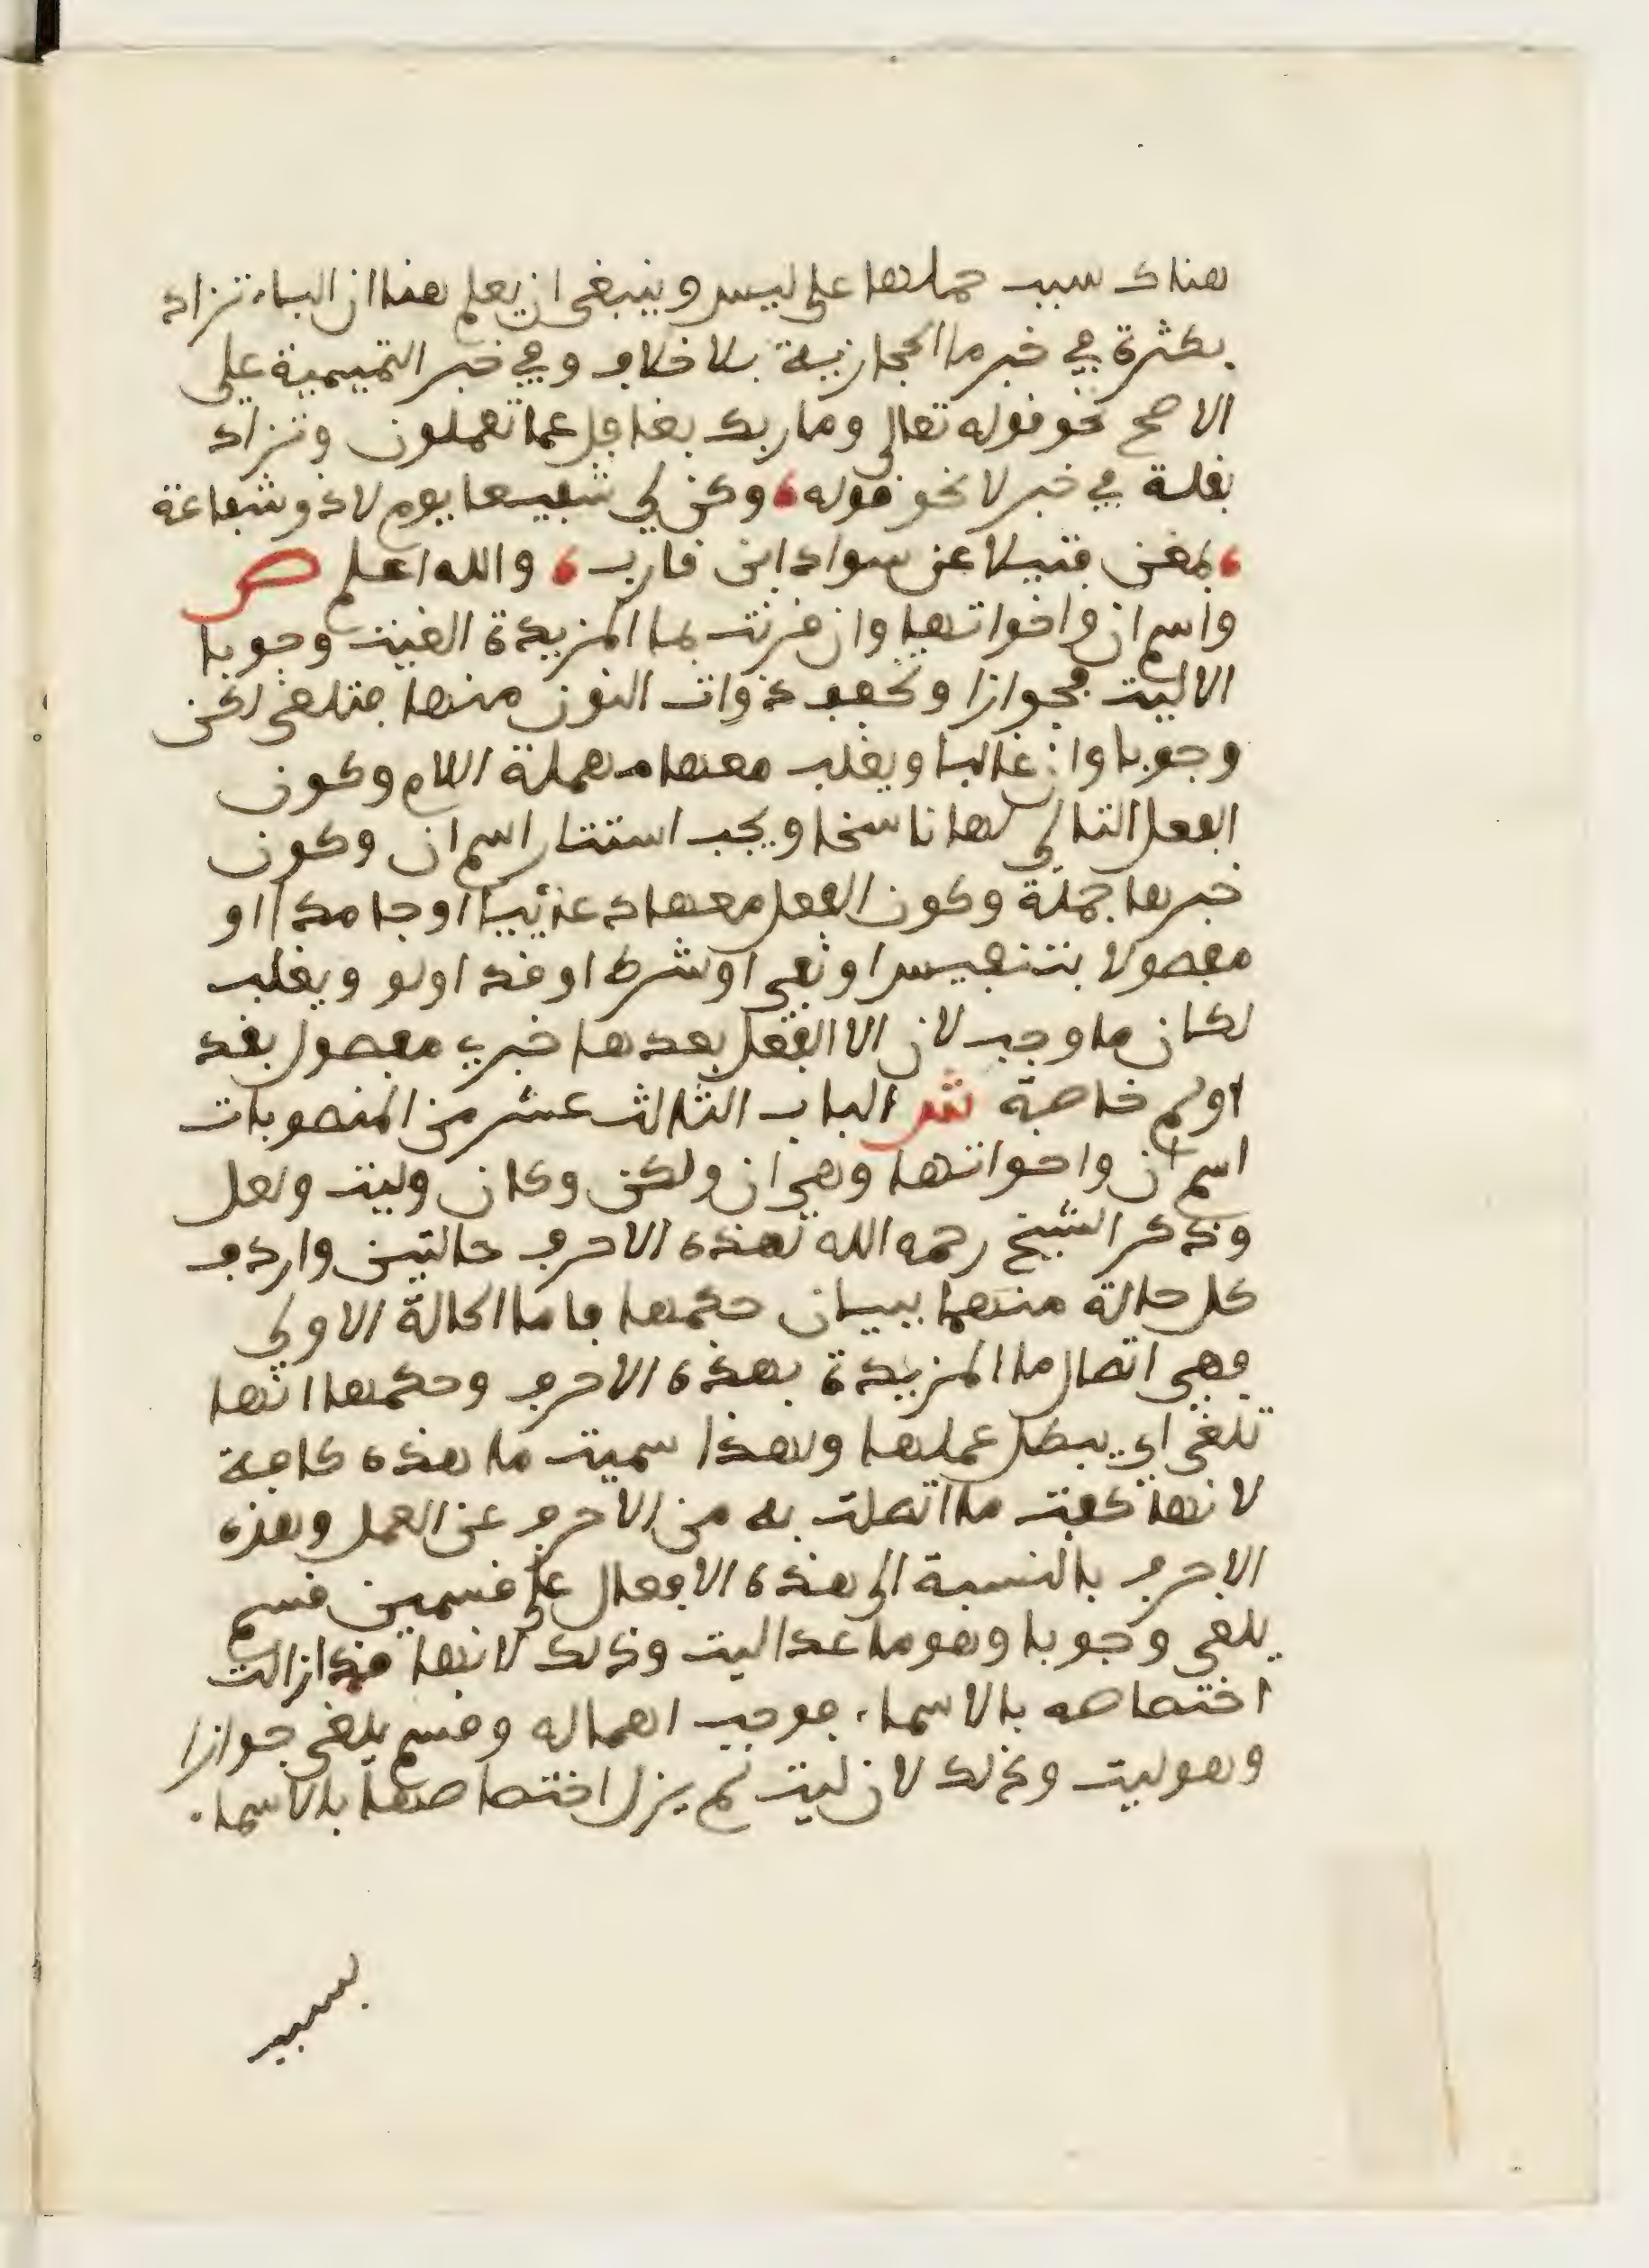 هناك سبب حملها على ليس وينبغي ان يعلم هنا ان الباء تزاد
بكثرة في خبر ما الحجازية بلا خلاف وفي خبر التميمية على
الاصح نحو قوله تعالى وما ربك بغافل عما تعملون وتزاد
بقلة في خبر لا نحو قوله، وكن لي شفيعا يوم لا ذو شفاعة
، بمغن فتيلا عن سواد ابن قارب ، والله اعلم ص
واسم ان واخواتها وان قرنت بما المزيدة الغيت وجوبا
الا ليت فجوازا وتخفف ذوات النون منها فتلغى لكن
وجوبا وان غالبا ويغلب معها مهملة اللام وكون
الفعل التالي لها ناسخا ويجب استتار اسم ان وكون
خبرها جملة وكون الفعل معها دعائيا او جامدا او
مفصولا بتنفيس او نفي او شرط او قد او لو ويغلب
لكان ما وجب لان الا الفعل بعدها خبري مفصول بقد
او لم خاصة ش الباب الثالث عشر من المنصوبات
اسم ان واخواتها وهي ان ولكن وكان وليت ولعل
وذكر الشيخ رحمه الله لهذه الاحرف حالتين واردف
كل حالة منهما ببيان حكمها فاما الحالة الاولى
فهي اتصال ما المزيدة بهذه الاحرف وحكمها انها
تلغى اي يبطل عملها ولهذا سميت ما هذه كافة
لانها كفت ما اتصلت به من الاحرف عن العمل وهذه
الاحرف بالنسبة الى هذه الافعال على قسمين قسم
يلغى وجوبا وهو ما عدا ليت وذلك لانها قد ازالت
اختصاصه بالاسماء فوجب اهماله وقسم يلغى جوازا
وهو ليت وذلك لان ليت لم يزل اختصاصها بالاسماء